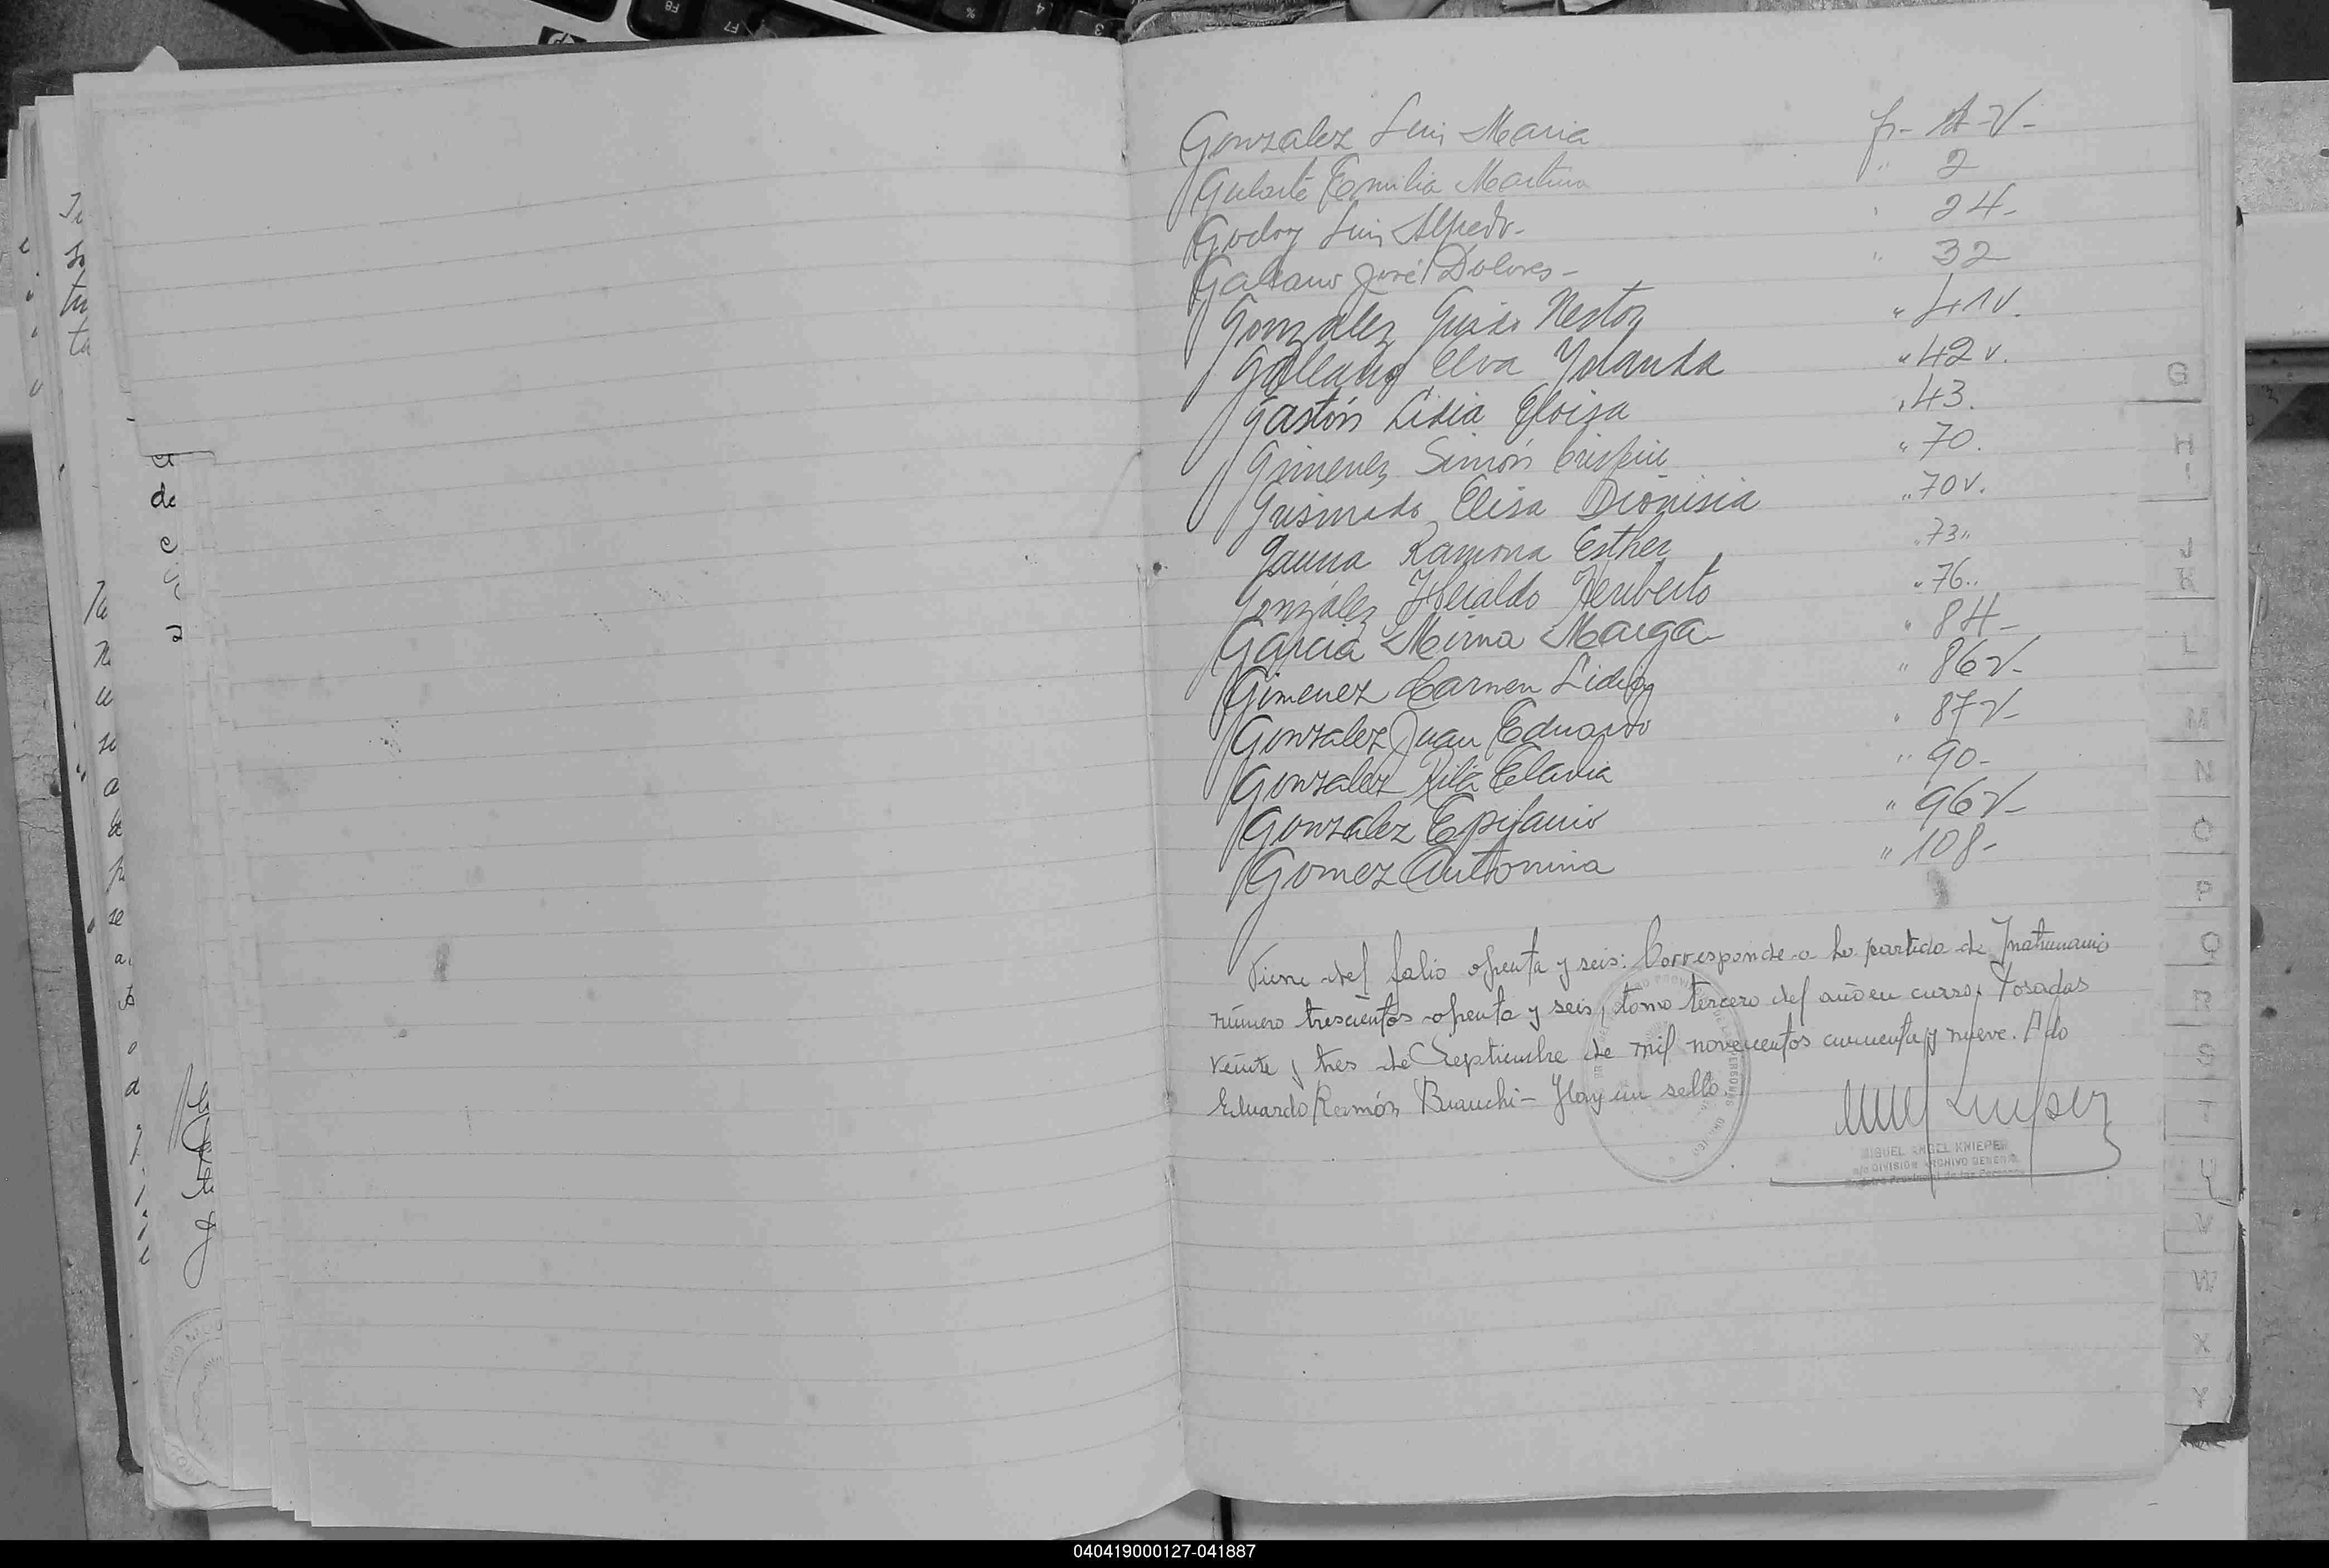 Gonzalez Luis Maria fs- 1-V-
Gularte Emilia Martina " 2
Godoy Luis Alfredo- " 24-
Galeano José Dolores- " 32
Gonzalez Guido Nestor " 41v.
Galeano Elva Yolanda " 42v.
Gastón Lidia Eloisa " 43.
Gimenez Simón Crispin " 70.
Grismado Elisa Dionisia " 70v.
Gauna Ramona Esther " 73"
González Heraldo Heriberto " 76..
Garcia Mirna Marga- " 84-
Gimenez Carmen Lidia " 86V-
Gonzalez Juan Eduardo " 87V-
Gonzalez Rita Elavia " 90-
Gonzalez Epifanio " 96V-
Gomez Antonina " 108-
Viene del folio ochenta y seis: Corresponde a la partida de Matrimonio
número trescientos ochenta y seis, tomo tercero del año en curso. Posadas
veinte y tres de Septiembre de mil novecientos cincuenta y nueve. Fdo
Eduardo Ramón Bianchi- Hay un sello.
MIGUEL ANGEL KNIEPER
DIVISION ARCHIVO GENERAL
Registro Provincial de las Personas
G
H
I
J
K
L
M
N
O
P
Q
R
S
T
U
V
W
X
Y
040419000127-041887